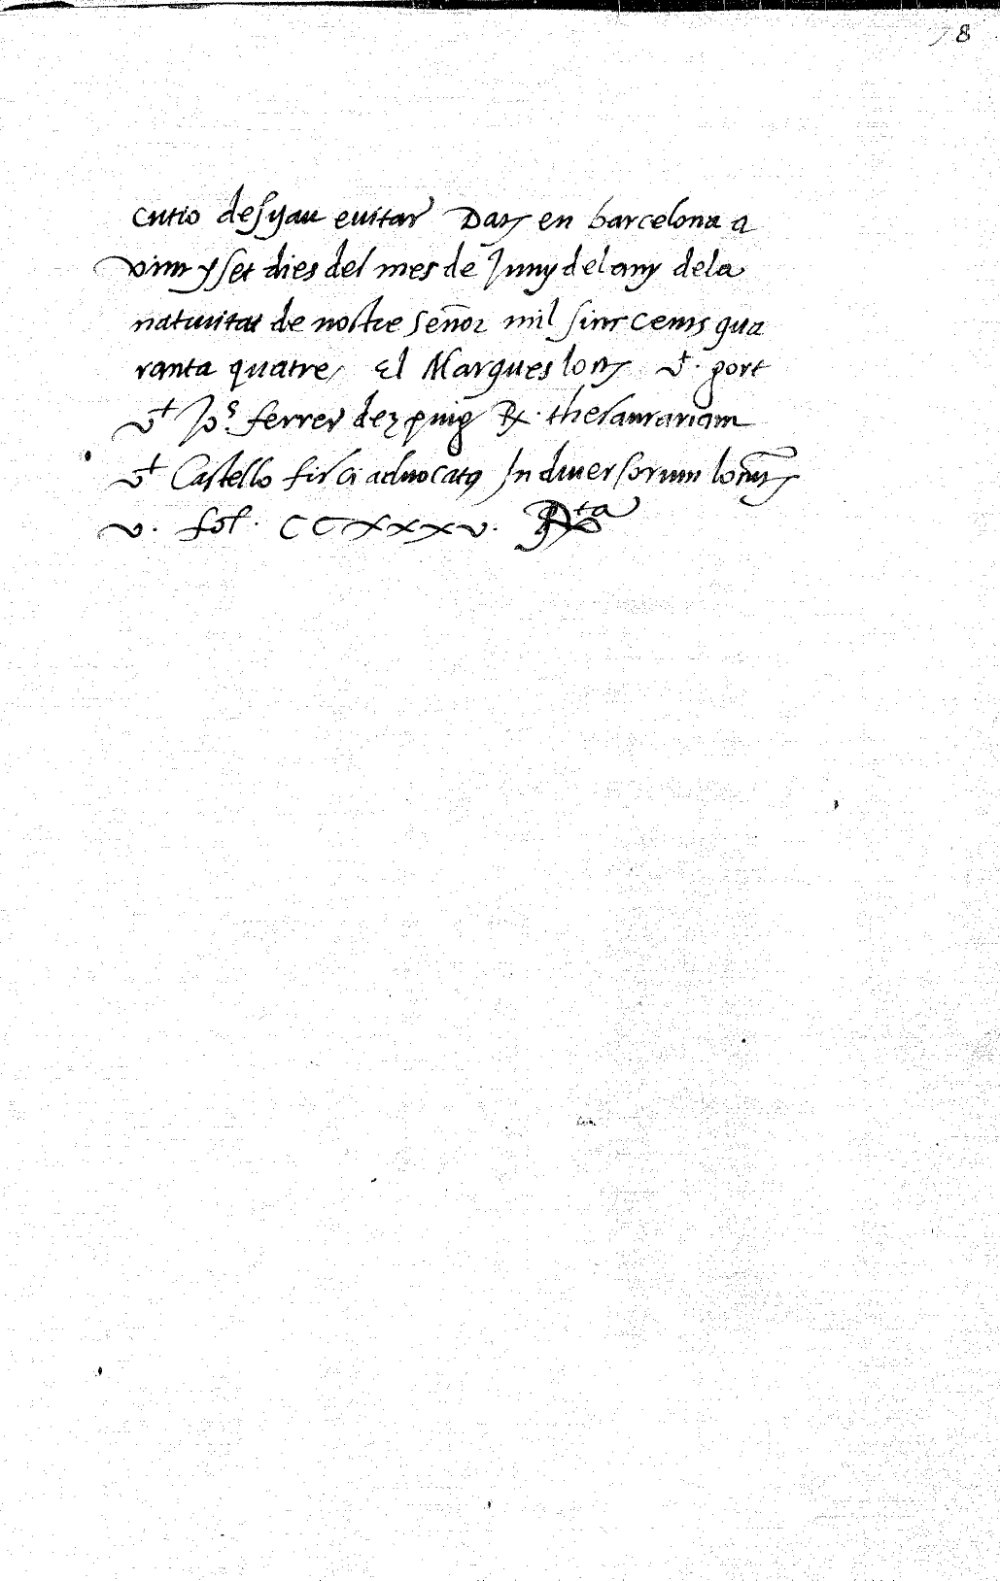 8
cutio desijau euitar Dat en barcelona a
vint y set dies del mes de Juny del any dela
natiuitat de nostre señor mil sinc cents qua
ranta quatre / El Marques loct. Vt. port
Vt Jos. ferrer dez puig Rx. thesaurariam
Vt Castello fisci aduocatus In diuersorum locumt.
v. fol. CCXXXV.